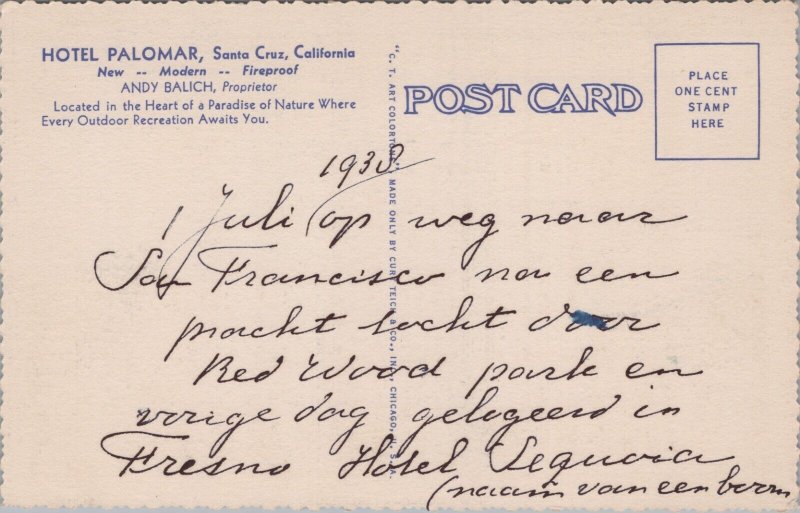 HOTEL PALOMAR, Santa Cruz, California
New -- Modern -- Fireproof
ANDY BALICH, Proprietor
Located in the Heart of a Paradise of Nature Where
Every Outdoor Recreation Awaits You.
"C. T. ART COLORTONE" MADE ONLY BY CURT TEICH & CO., INC., CHICAGO, U. S. A.
POST CARD
PLACE
ONE CENT
STAMP
HERE
1938
1 Juli op weg naar
San Francisco na een
pracht tocht door
Red Wood park en
vorige dag gelogeerd in
Fresno Hotel Sequoia
(naam van een boom